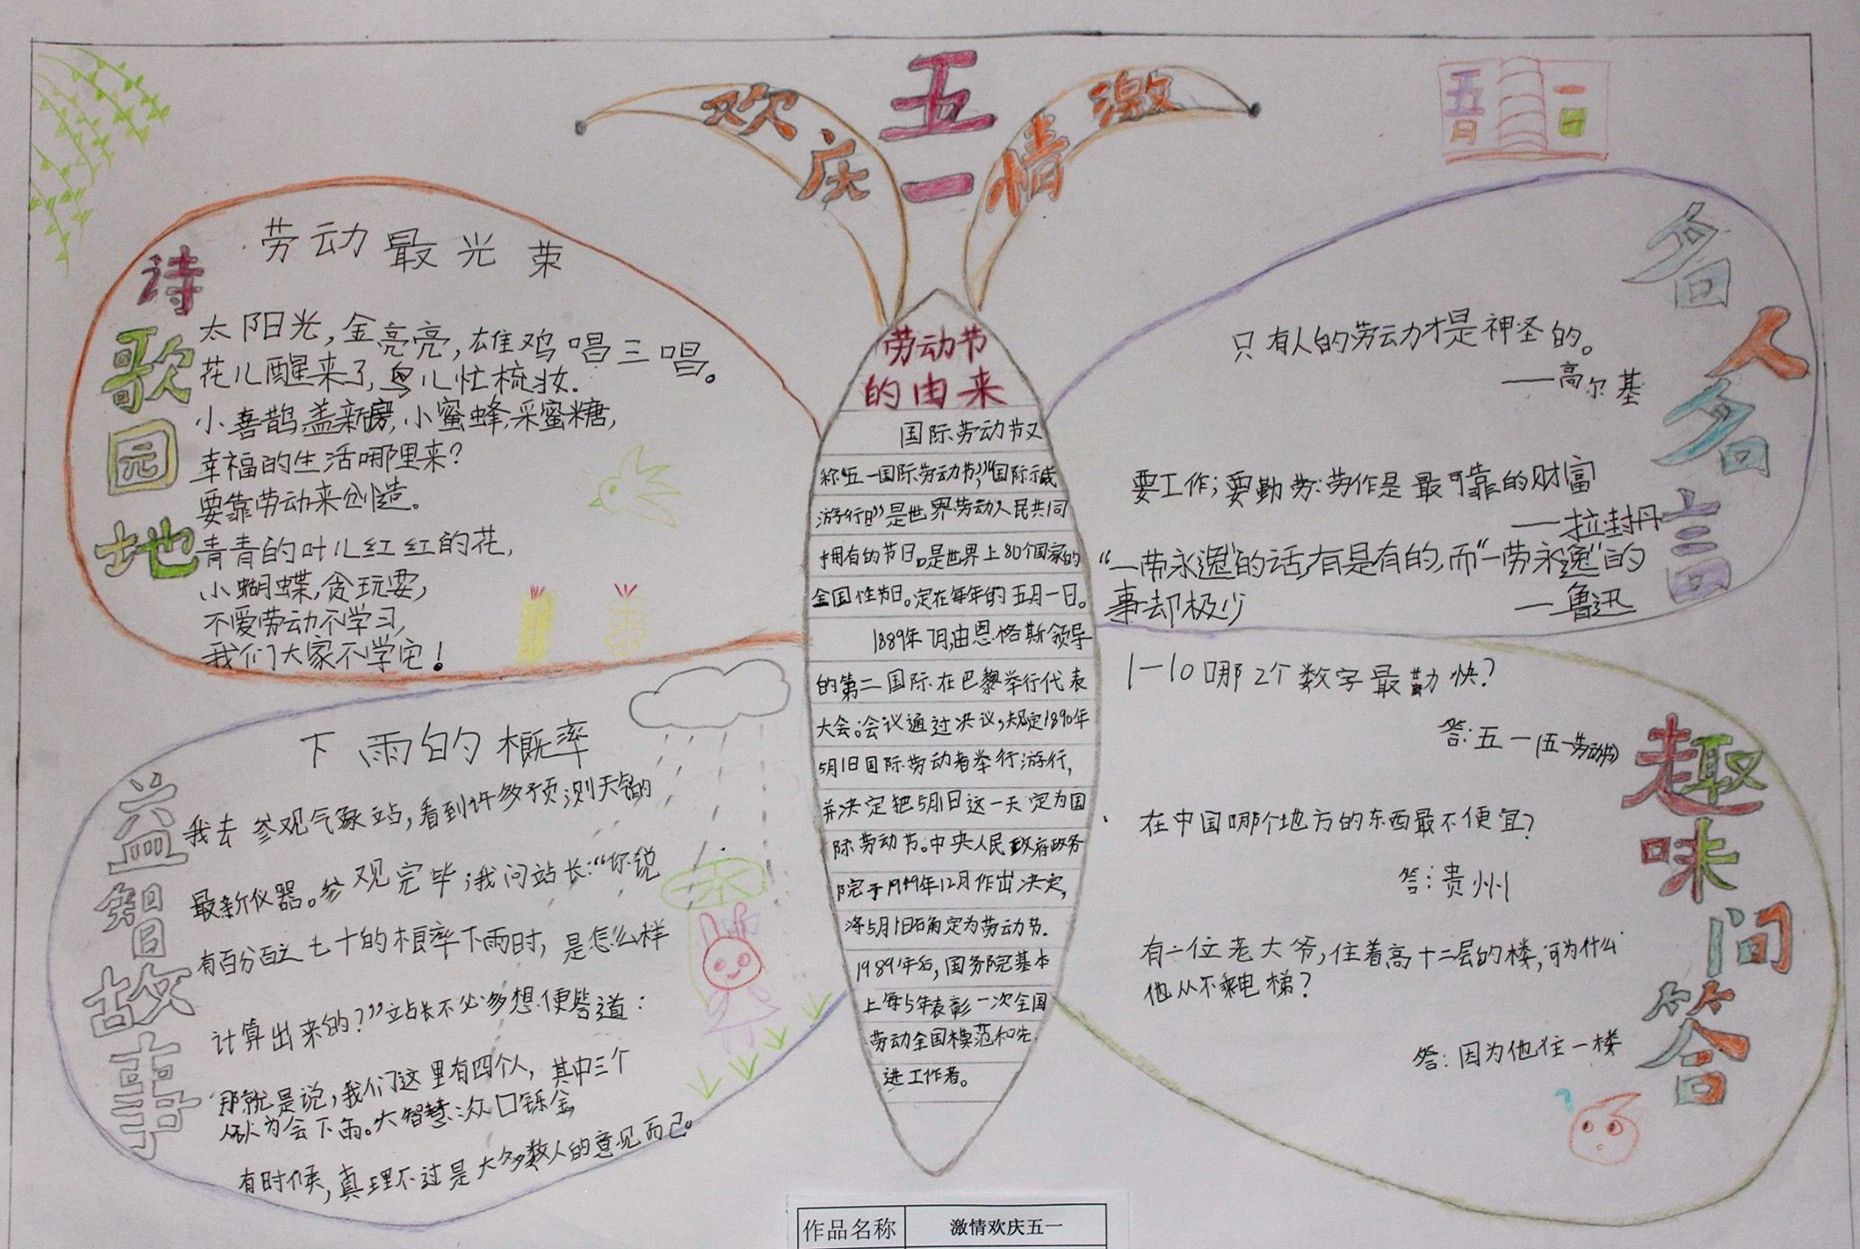 激情欢庆五一
五月
一日
诗歌园地
劳动最光荣
太阳光,金亮亮,雄鸡唱三唱。
花儿醒来了,鸟儿忙梳妆.
小喜鹊,盖新房,小蜜蜂,采蜜糖,
幸福的生活哪里来?
要靠劳动来创造。
青青的叶儿红红的花,
小蝴蝶,贪玩耍,
不爱劳动不学习,
我们大家不学它!
益智故事
下雨的概率
我去参观气象站,看到许多预测天气的
最新仪器。参观完毕,我问站长:“你说
有百分百之七十的概率下雨时,是怎么样
计算出来的?”站长不必多想便答道:
那就是说,我们这里有四个人,其中三个
认为会下雨。大智慧:众口铄金
有时候,真理不过是大多数人的意见而已。
劳动节
的由来
国际劳动节又
称“五一国际劳动节”,“国际示威
游行日”是世界劳动人民共同
拥有的节日。是世界上80个国家的
全国性节日。定在每年的五月一日。
1889年7月,由恩格斯领导
的第二国际在巴黎举行代表
大会。会议通过决议,规定1890年
5月1日国际劳动者举行游行,
并决定把5月1日这一天定为国
际劳动节。中央人民政府政务
院于1949年12月作出决定,
将5月1日确定为劳动节.
1989年后,国务院基本
上每5年表彰一次全国
劳动全国模范和先
进工作者。
名人名言
只有人的劳动才是神圣的。
——高尔基
要工作;要勤劳:劳作是最可靠的财富
——拉封丹
“一劳永逸”的话,有是有的,而“一劳永逸”的
事却极少
——鲁迅
趣味问答
1—10哪2个数字最勤快?
答:五一(五一劳动节)
在中国哪个地方的东西最不便宜?
答:贵州
有一位老大爷,住着高十二层的楼,可为什么
他从不乘电梯?
答:因为他住一楼
作品名称 激情欢庆五一